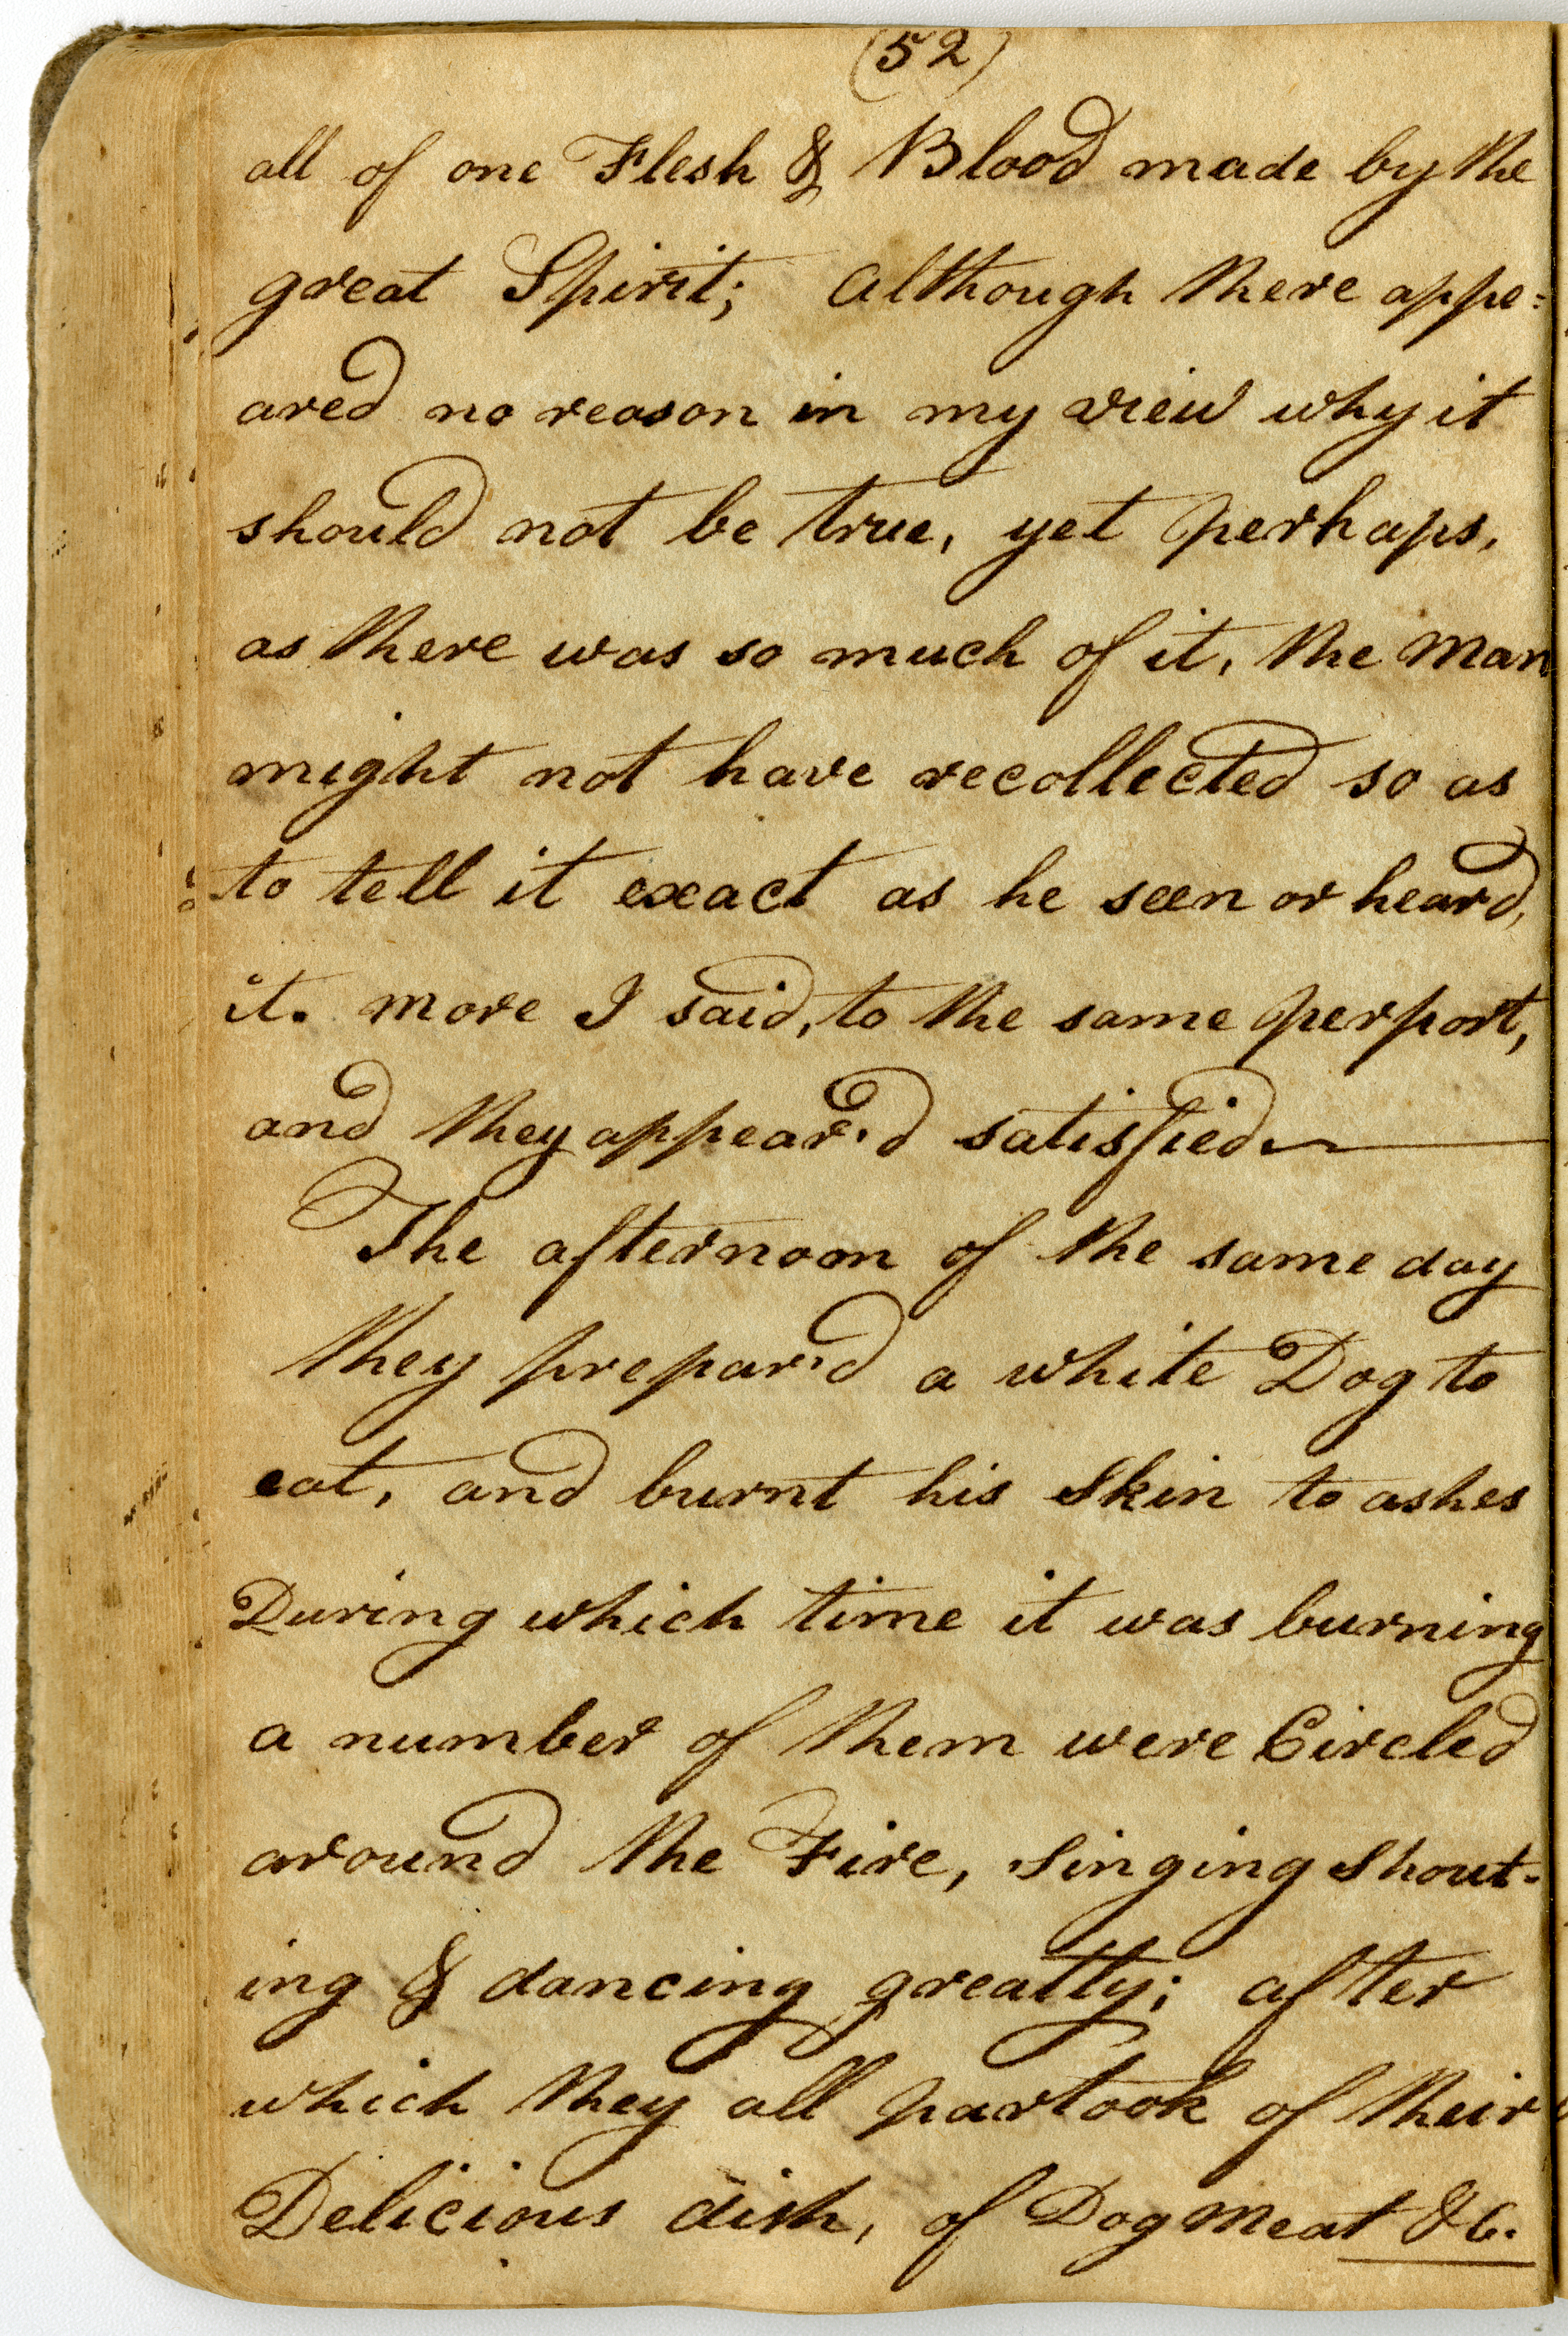 (52)
all of one Flesh & Blood made by the
great Spirit; Although there appe=
ared no reason in my view why it
should not be true, yet perhaps,
as there was so much of it, the Man
might not have recollected so as
to tell it exact as he seen or heard,
it. more I said, to the same perport,
and they appear'd satisfied
The afternoon of the same day
they prepar'd a white Dog to
eat, and burnt his Skin to ashes
During which time it was burning
a number of them were Circled
around the Fire, singing shout-
ing & dancing greatly; after
which they all partook of their
Delicious dish, of Dog Meat &C.